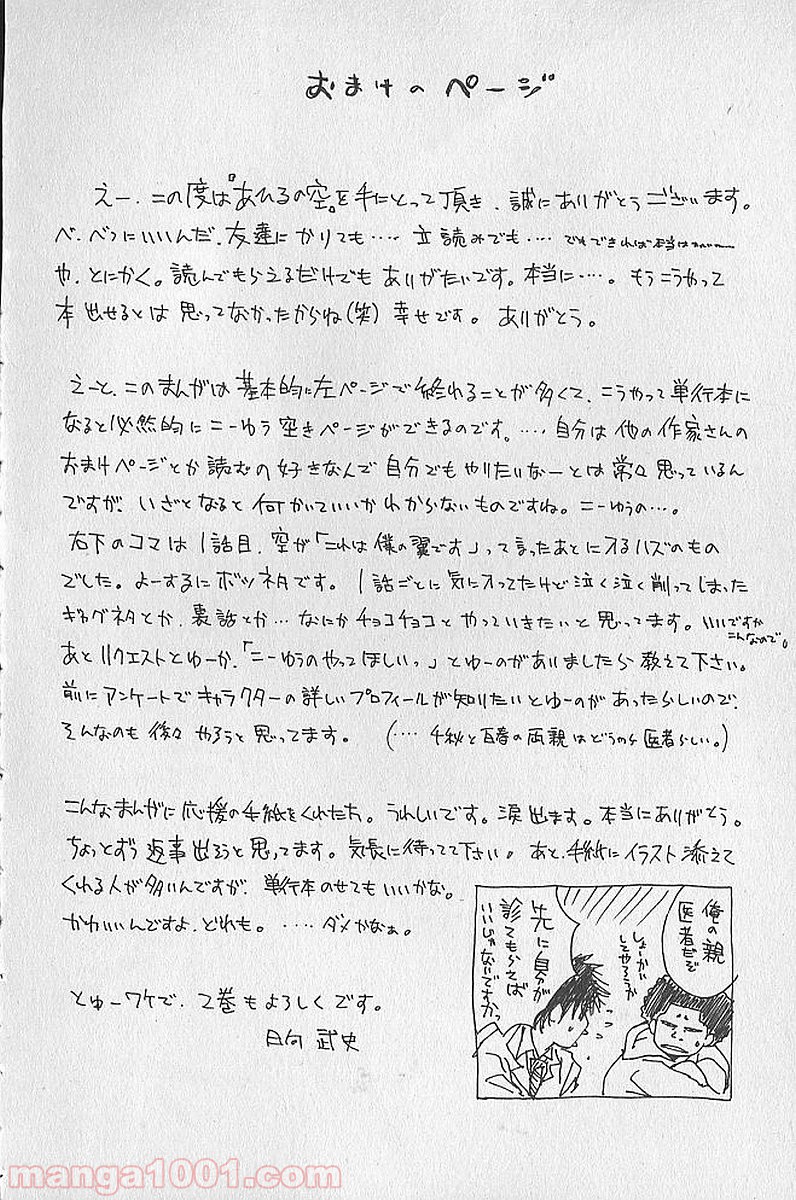 おまけの ページ
えー、この度は『あひるの空』を手にとって頂き、誠にありがとうございます。
べ、べつにいいんだ、友達にかりても‥‥ 立読みでも‥‥ でもできれば本当は
や、とにかく。読んでもらえるだけでも ありがたいです。本当に‥‥。もうこうやって
本出せるとは思ってなかったからね(笑) 幸せです。ありがとう。
えーと、このまんがは基本的に左ページで終わることが多くて、こうやって単行本に
なると必然的にこーゆう空きページができるのです。‥‥自分は他の作家さんの
おまけページとか読むの好きなんで自分でもやりたいなーとは常々思っているん
ですが、いざとなると何かいていいかわからないものですね。こーゆうの…。
右下のコマは1話目、空が「これは僕の翼です」って言ったあとに入るハズのもの
でした。よーするにボツネタです。1話ごとに気に入ってたけど泣く泣く削ってしまった
ギャグネタとか、裏話とか…なにかチョコチョコとやっていきたいと思ってます。いいですか
こんなので。
あとリクエストとゆーか、「こーゆうのやってほしいっ」とゆーのがありましたら教えて下さい。
前にアンケートでキャラクターの詳しいプロフィールが知りたいとゆーのがあったらしいので、
そんなのも後々やろうと思ってます。(‥‥千秋と百春の両親はどうやら医者らしい。)
こんなまんがに応援の手紙をくれたち。うれしいです。涙出ます。本当にありがとう。
ちょっとずつ返事出そうと思ってます。気長に待ってて下さい。あと、手紙にイラスト添えて
くれる人が多いんですが、単行本のせてもいいかな。
かわいいんですよ、どれも。‥‥ダメかなぁ。
とゆーワケで、2巻もよろしくです。
日向 武史
俺の親
医者だぞ
しょーかい
してやろうか
先に自分が
診てもらえば
いいじゃないですか
manga1001.com